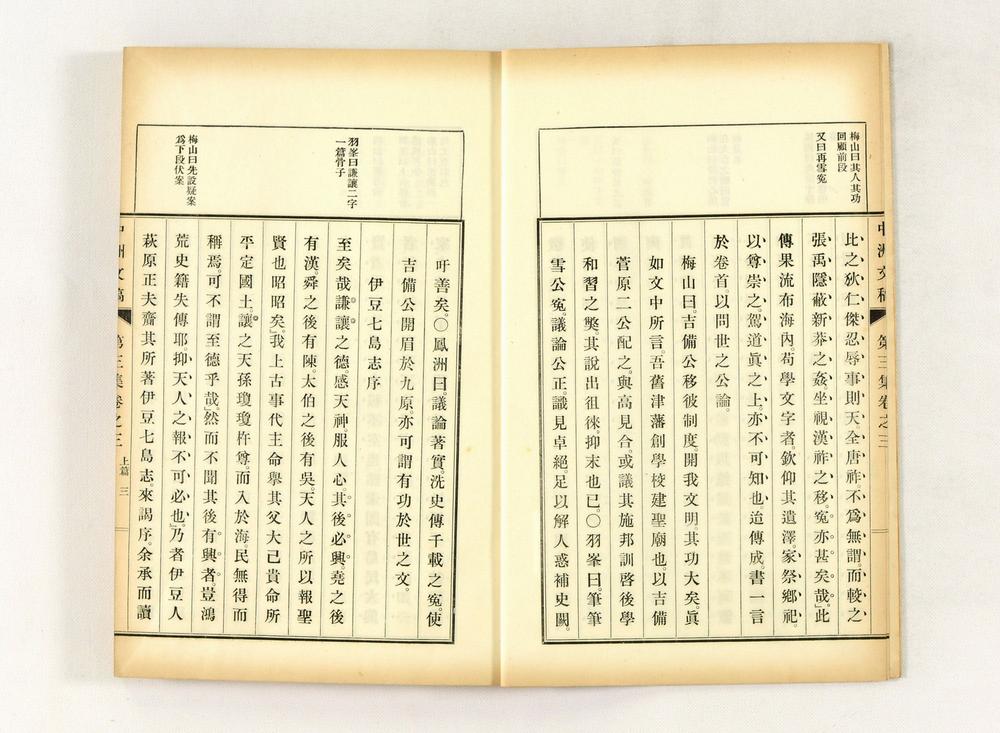 梅山曰其人其功
回顧前段
又曰再雪寃
中洲文稿 第三集卷之三
比之狄仁傑忍辱事則天。全唐祚。不爲無謂。而較之
張禹隱蔽新莽之姦。坐視漢祚之移。寃亦甚矣哉。」此
傳果流布海內。苟學文字者。欽仰其遺澤。家祭鄉祀。
以尊崇之。駕道眞之上。亦不可知也。迨傳成。書一言
於卷首。以問世之公論。
梅山曰。吉備公移彼制度。開我文明。其功大矣。眞
如文中所言。吾舊津藩創學校建聖廟也。以吉備
菅原二公配之。與高見合。或議其施邦訓啓後學
和習之獘。其說出徂徠。抑末也已。〇羽峯曰。筆筆
雪公寃。議論公正。識見卓絕。足以解人惑補史闕。
羽峯曰謙讓二字
一篇骨子
梅山曰先設疑案
爲下段伏案
吁善矣。〇鳳洲曰。議論著實。洗史傳千載之寃。使
吉備公開眉於九原。亦可謂有功於世之文。
伊豆七島志序
至矣哉謙讓之德。感天神。服人心。其後必興。堯之後
有漢。舜之後有陳。太伯之後有吳。天人之所以報聖
賢也昭昭矣。」我上古事代主命舉其父大己貴命所
平定國土。讓之天孫瓊瓊杵尊。而入於海。民無得而
稱焉。可不謂至德乎哉。」然而不聞其後有興者。豈鴻
荒史籍失傳耶。抑天人之報不可必也。」乃者伊豆人
萩原正夫齎其所著伊豆七島志。來謁序。余承而讀
中洲文稿 第三集卷之三 上篇 三